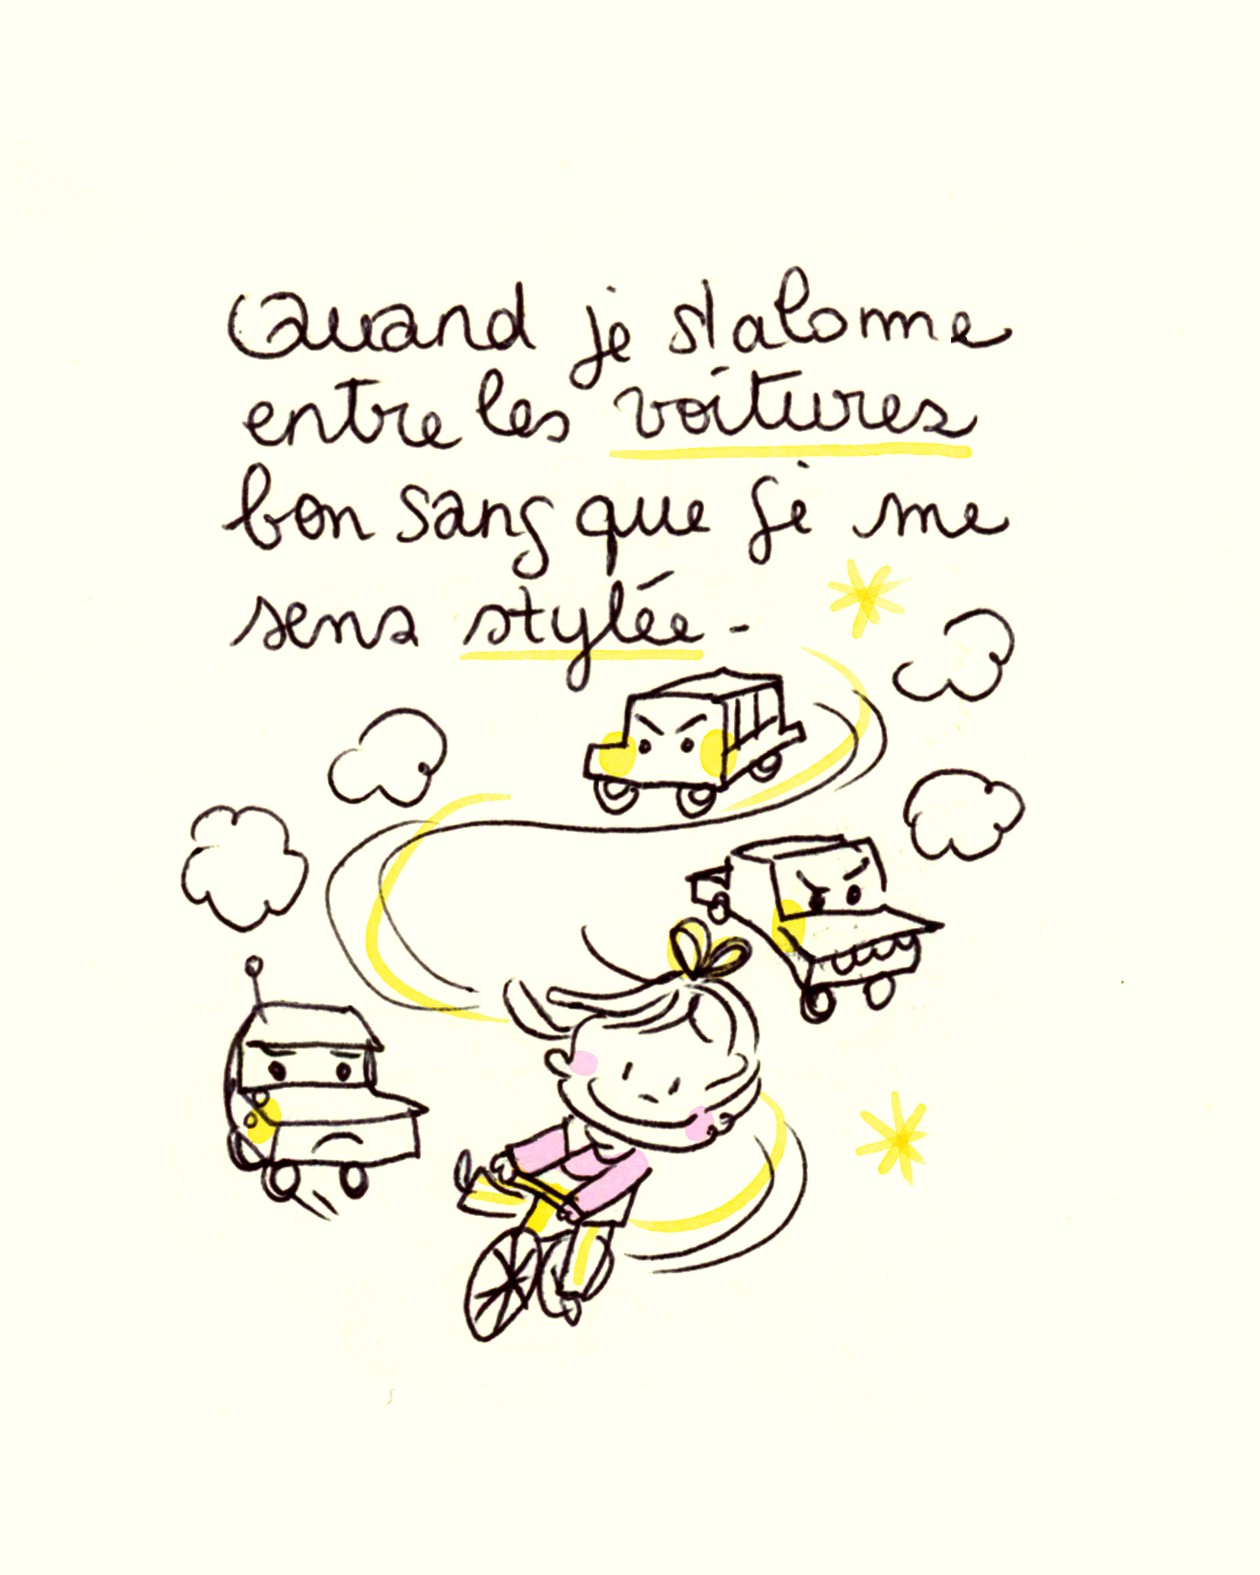 Quand je slalomme
entre les voitures
bon sang que je me
sens stylée -